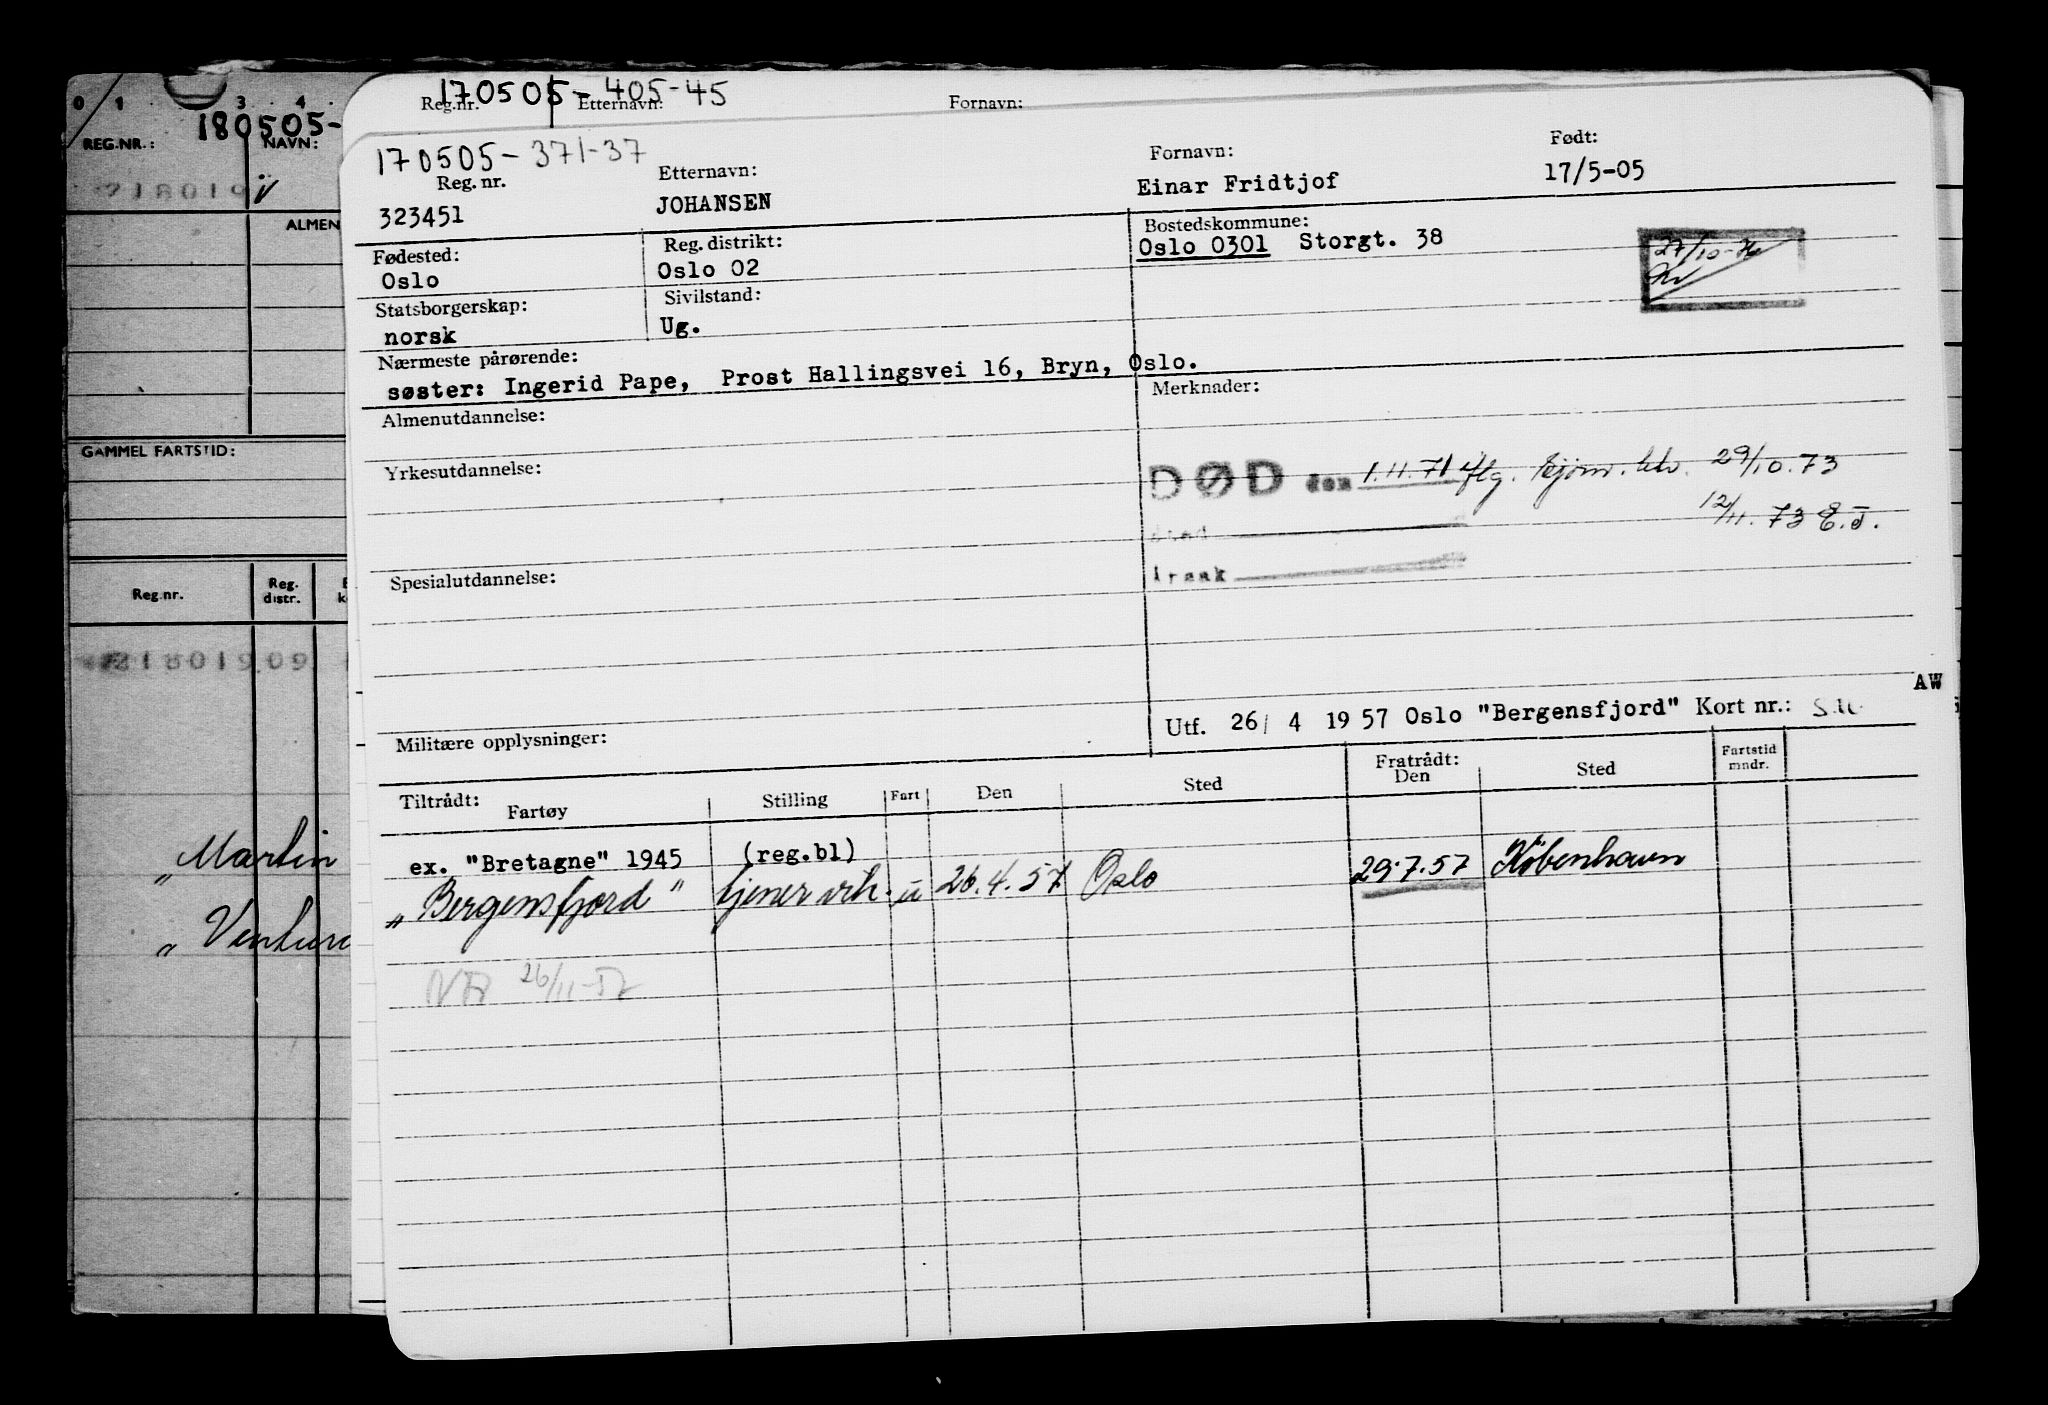 0 1 3 4
REG.NR.: 180505- NAVN:
218019
ALMEN
GAMMEL FARTSTID:
Reg.nr. Reg. distr.
218019 09
„Martin
„Ventura
170505-405-45
Reg.nr. Etternavn: Fornavn:
170505-371-37
Reg. nr. Etternavn: Fornavn: Født:
323451 JOHANSEN Einar Fridtjof 17/5-05
Fødested: Reg. distrikt: Bostedskommune:
Oslo Oslo 02 Oslo 0301 Storgt. 38
27/10-76
Statsborgerskap: Sivilstand:
norsk Ug.
Nærmeste pårørende:
søster: Ingerid Pape, Prost Hallingsvei 16, Bryn, Oslo.
Almenutdannelse: Merknader:
Yrkesutdannelse:
DØD den 1.11.71 iflg. 29/10.73
sted 12/11.73 E.J.
årsak
Spesialutdannelse:
AW
Militære opplysninger: Utf. 26/ 4 1957 Oslo "Bergensfjord" Kort nr.:
Tiltrådt: Fartøy Stilling Fart Den Sted Fratrådt: Den Sted Fartstid mndr.
ex. "Bretagne" 1945 (reg.bl)
„Bergensfjord" tjener vik. u 26.4.57 Oslo 29.7.57 København
NR 26/11-57